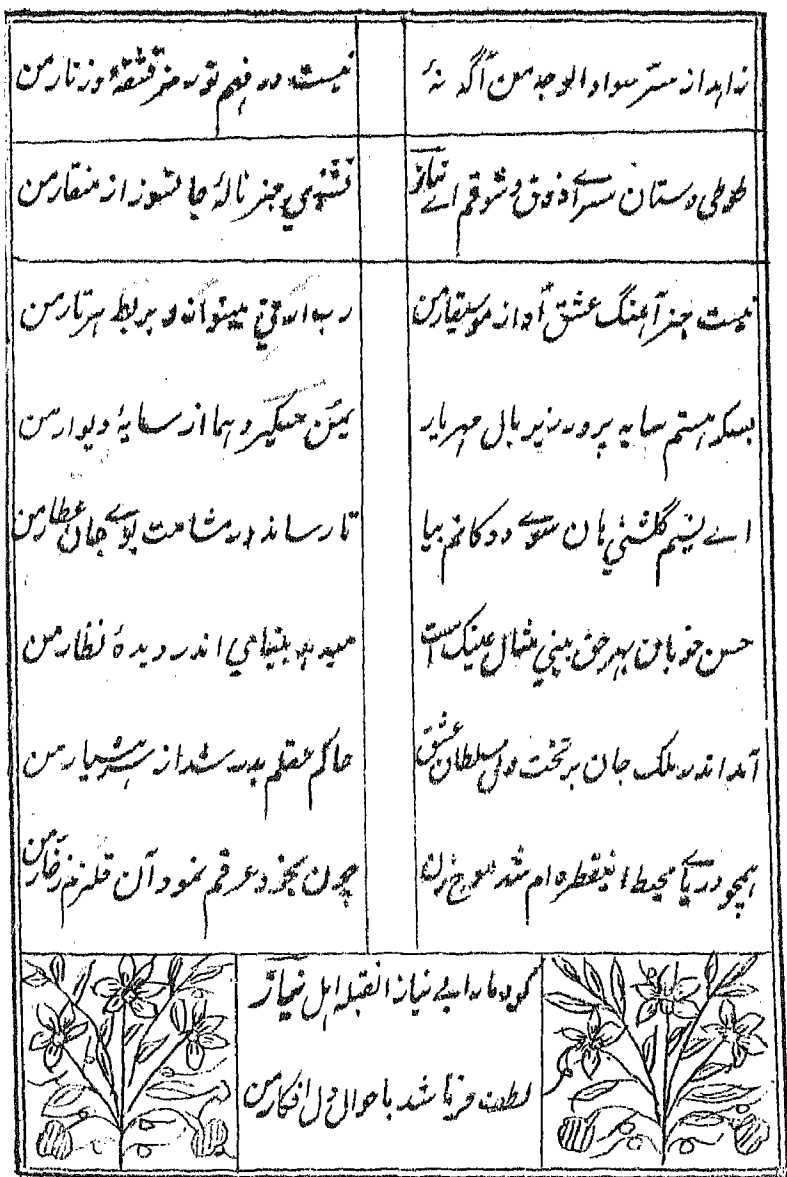 زاهدا از سر سواد الوجه من آگه نهٔ
نیست در فهم تو رمز قشقهٔ و زنار من
طوطی دستان سرائے ذوق و شوقم اے نیاز
نشنوی جز نالهٔ جانسوز از منقار من
نیست جز آهنگ عشق آواز موسیقار من
رب ارنی میتواند بربط هر تار من
بسکه هستم سایه پرور زیر بال مهر یار
یمن میگیرد هما از سایهٔ دیوار من
اے نسیم گلشنی هان سوے دوکانم بیا
تا رساند در مشامت بوے جان عطار من
حسن خوبان بهر حق بینی مثال عینک است
میدهد بینائی اندر دیدهٔ نظار من
آمد اندر ملک جان بر تخت دل سلطان عشق
حاکم عقلم بدر شد از سر هشیار من
همچو دریاے محیط اینقطره ام شد موج زن
چون بخود غرقم نمود آن قلزم زخار من
کرد مارا بے نیاز انقبله اهل نیاز
لطف فرما شد باحوال دل افکار من